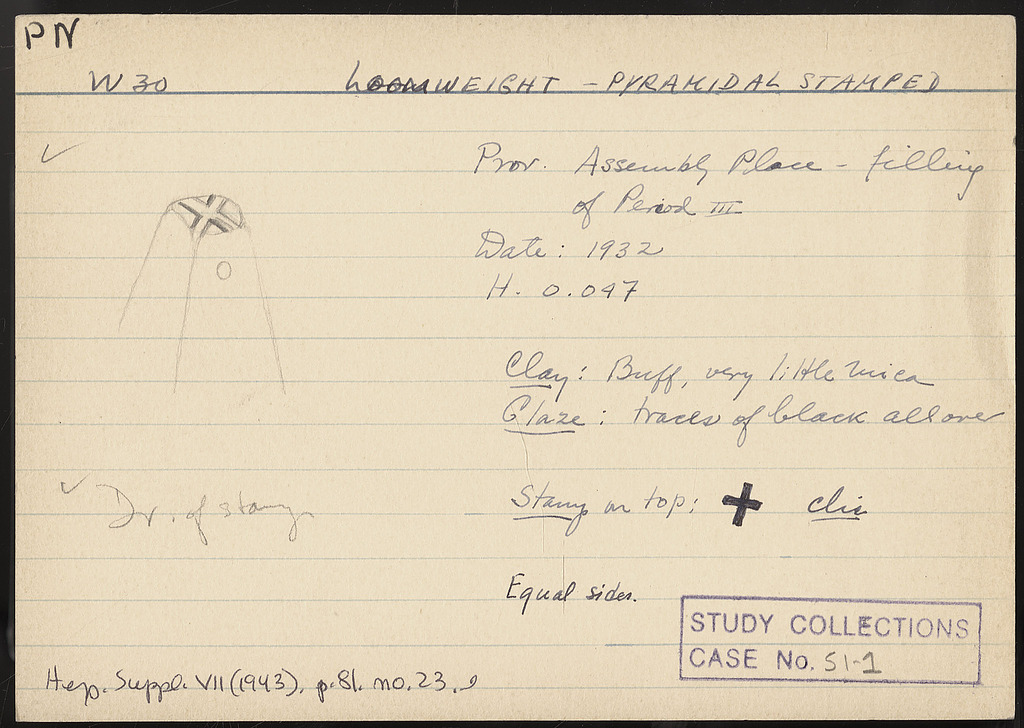 PN
W 30 LOOMWEIGHT - PYRAMIDAL STAMPED
Prov. Assembly Place - filling
of Period III
Date: 1932
H. 0.097
Clay: Buff, very little mica
Glaze: traces of black all over
Dr. of stamp
Stamp on top:
Equal sides.
STUDY COLLECTIONS
CASE No. S1-1
Hesp. Suppl. VII (1943), p. 81. no. 23.